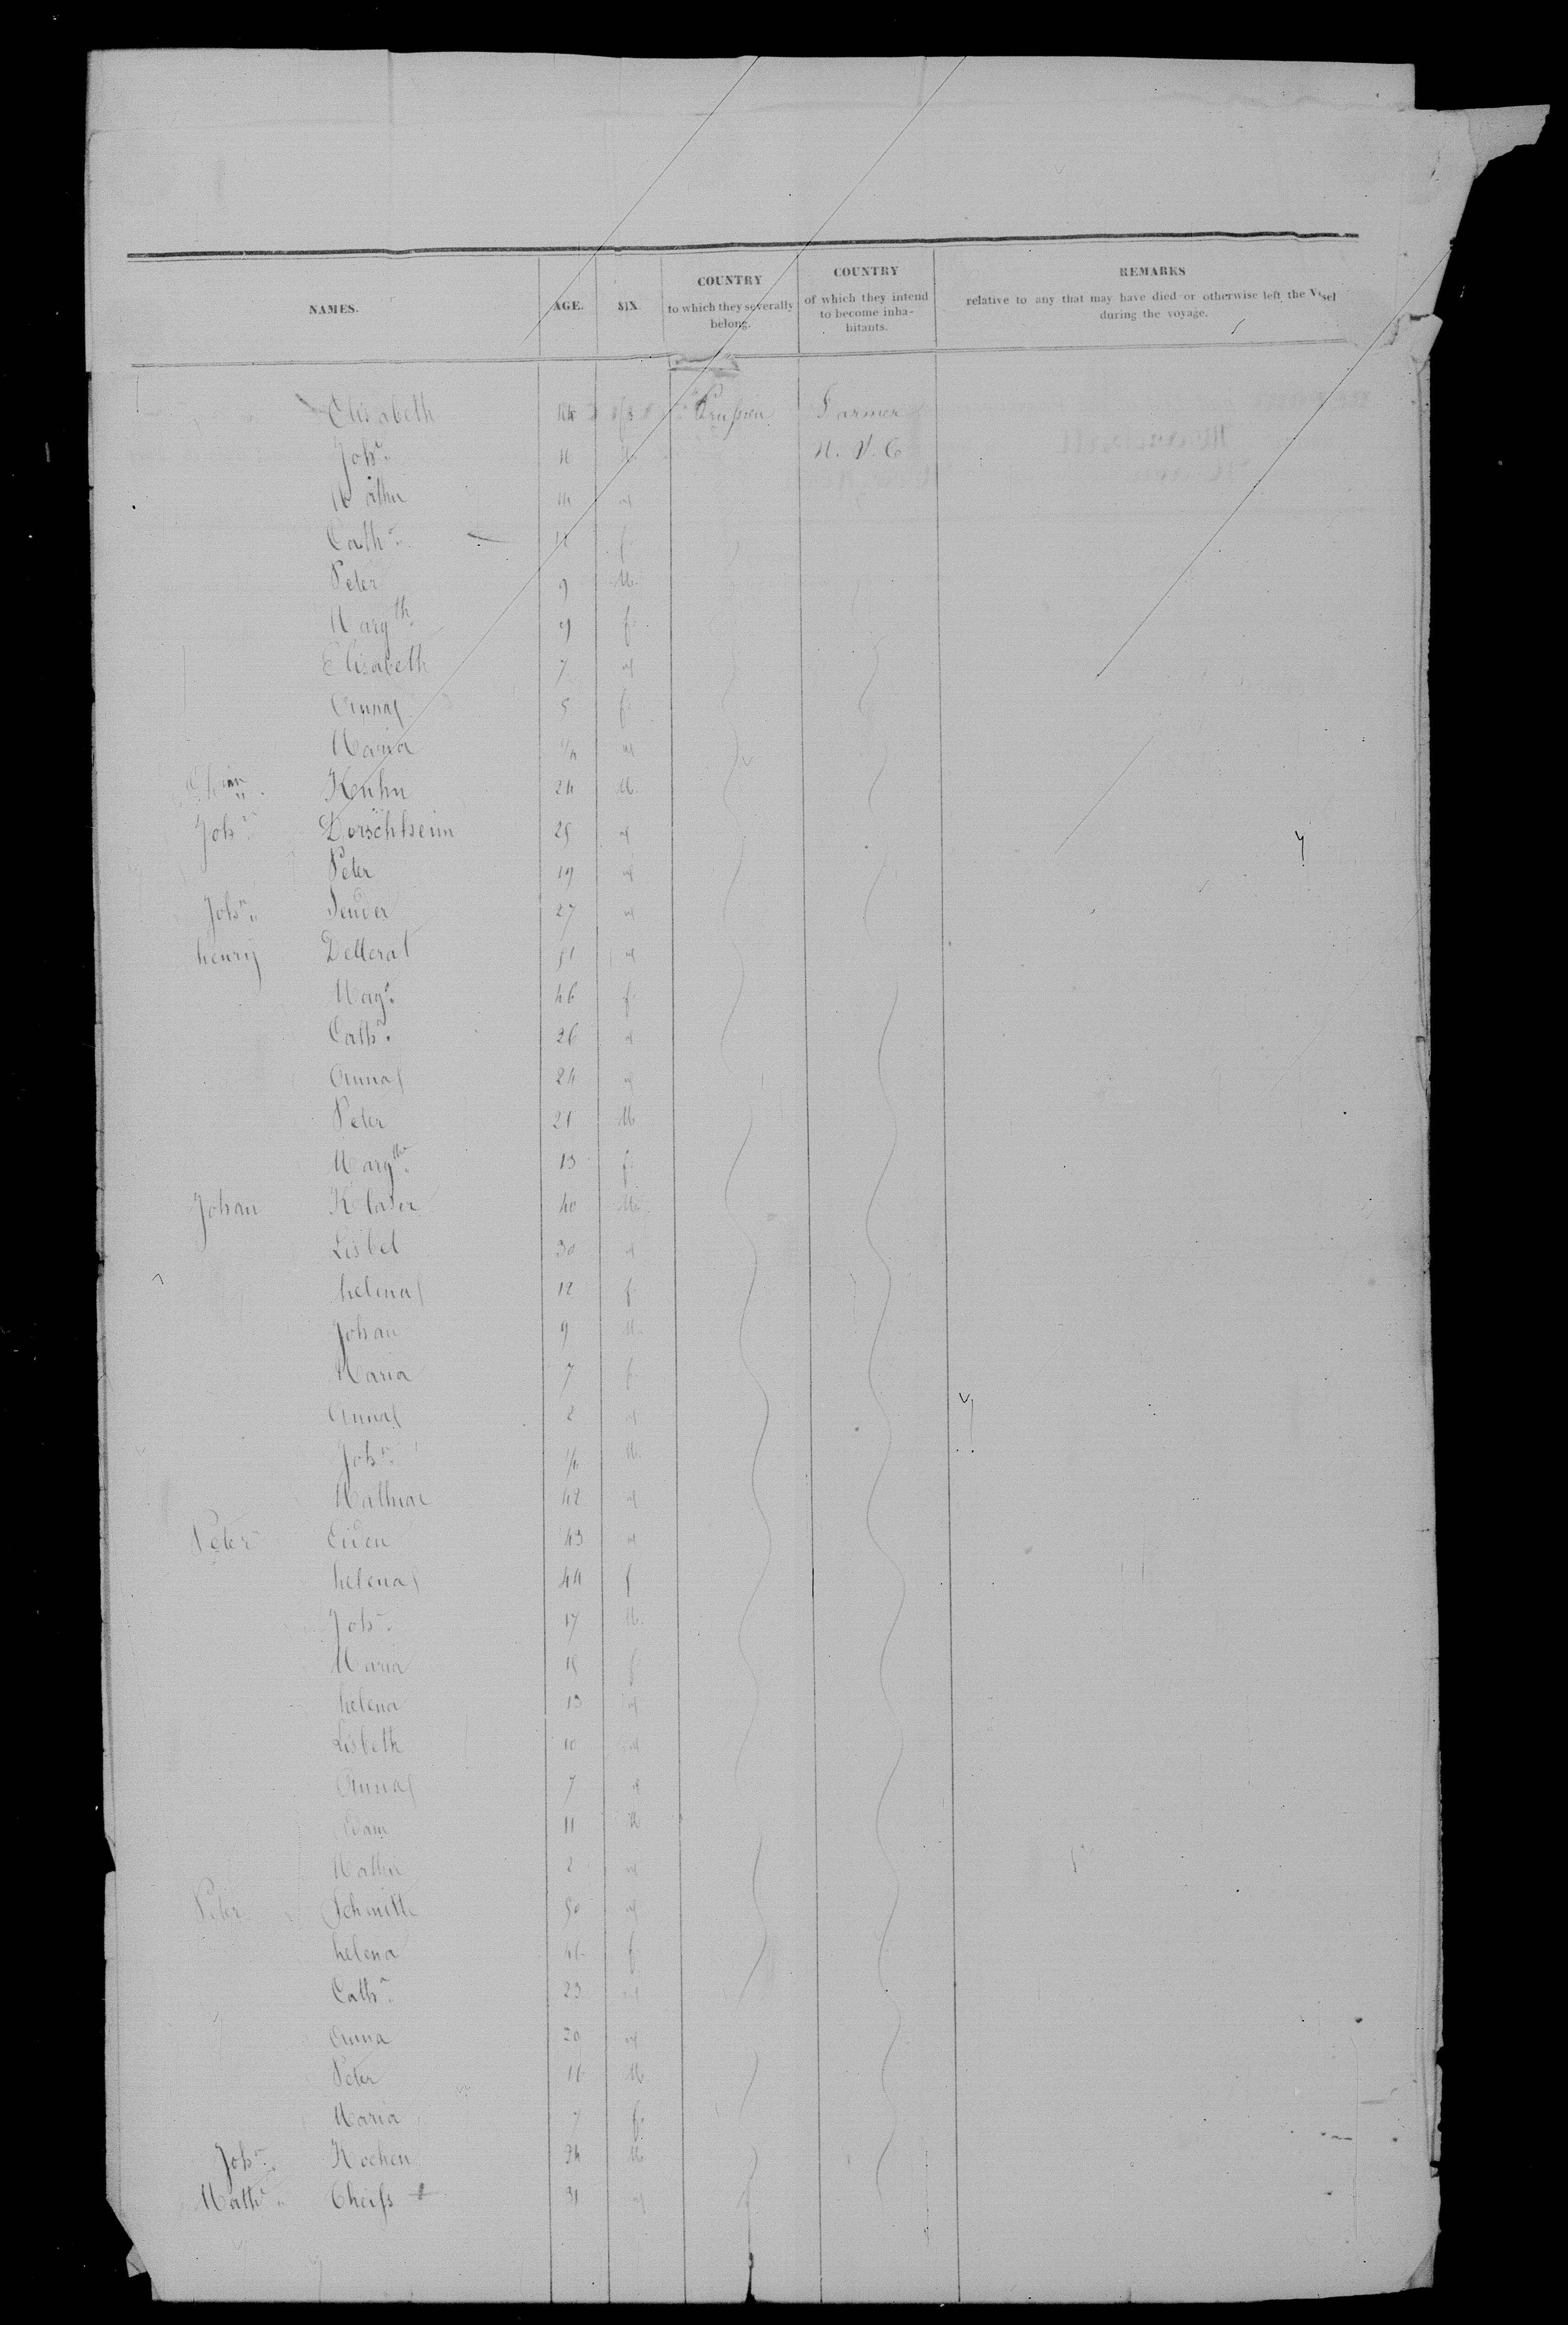 NAMES. AGE. SEX. COUNTRY to which they severally belong. COUNTRY of which they intend to become inhabitants. REMARKS relative to any that may have died or otherwise left the Vessel during the voyage.
Elisabeth 44 f Prussen Farmer
John. M. N. Y. C
14 "
Cathn. 12 f.
Peter 9 M.
Margth. 9 f.
Elisabeth 7 "
Anna 5 f.
Maria 1/4 "
Kuhn 24 M.
John. Dorschheim 25 "
Peter 19 "
John. 27 "
henry Detterat 51 "
Mag. 46 f.
Cathn. 26 "
Anna 24 "
Peter 21 M
Margth. 13 f.
Johan Klaser 40 M.
Lisbet 30 "
helena 12 f.
Johan 9 M.
Maria 7 f.
Anna 2 "
John. 1/4 M.
Mathias 42 "
Peter Eiden 43 "
helena 44 f
John. 17 M.
Maria 15 f
helena 13 "
Lisbeth 10 "
Anna 7 "
Adam 11 M
2 "
Peter Schmitte 50 "
helena 46 f.
Cathn. 23 "
Anna 20 "
Peter 16 M
Maria 7 f.
John. Kochen 34 M
Mathn. Theiss 31 "